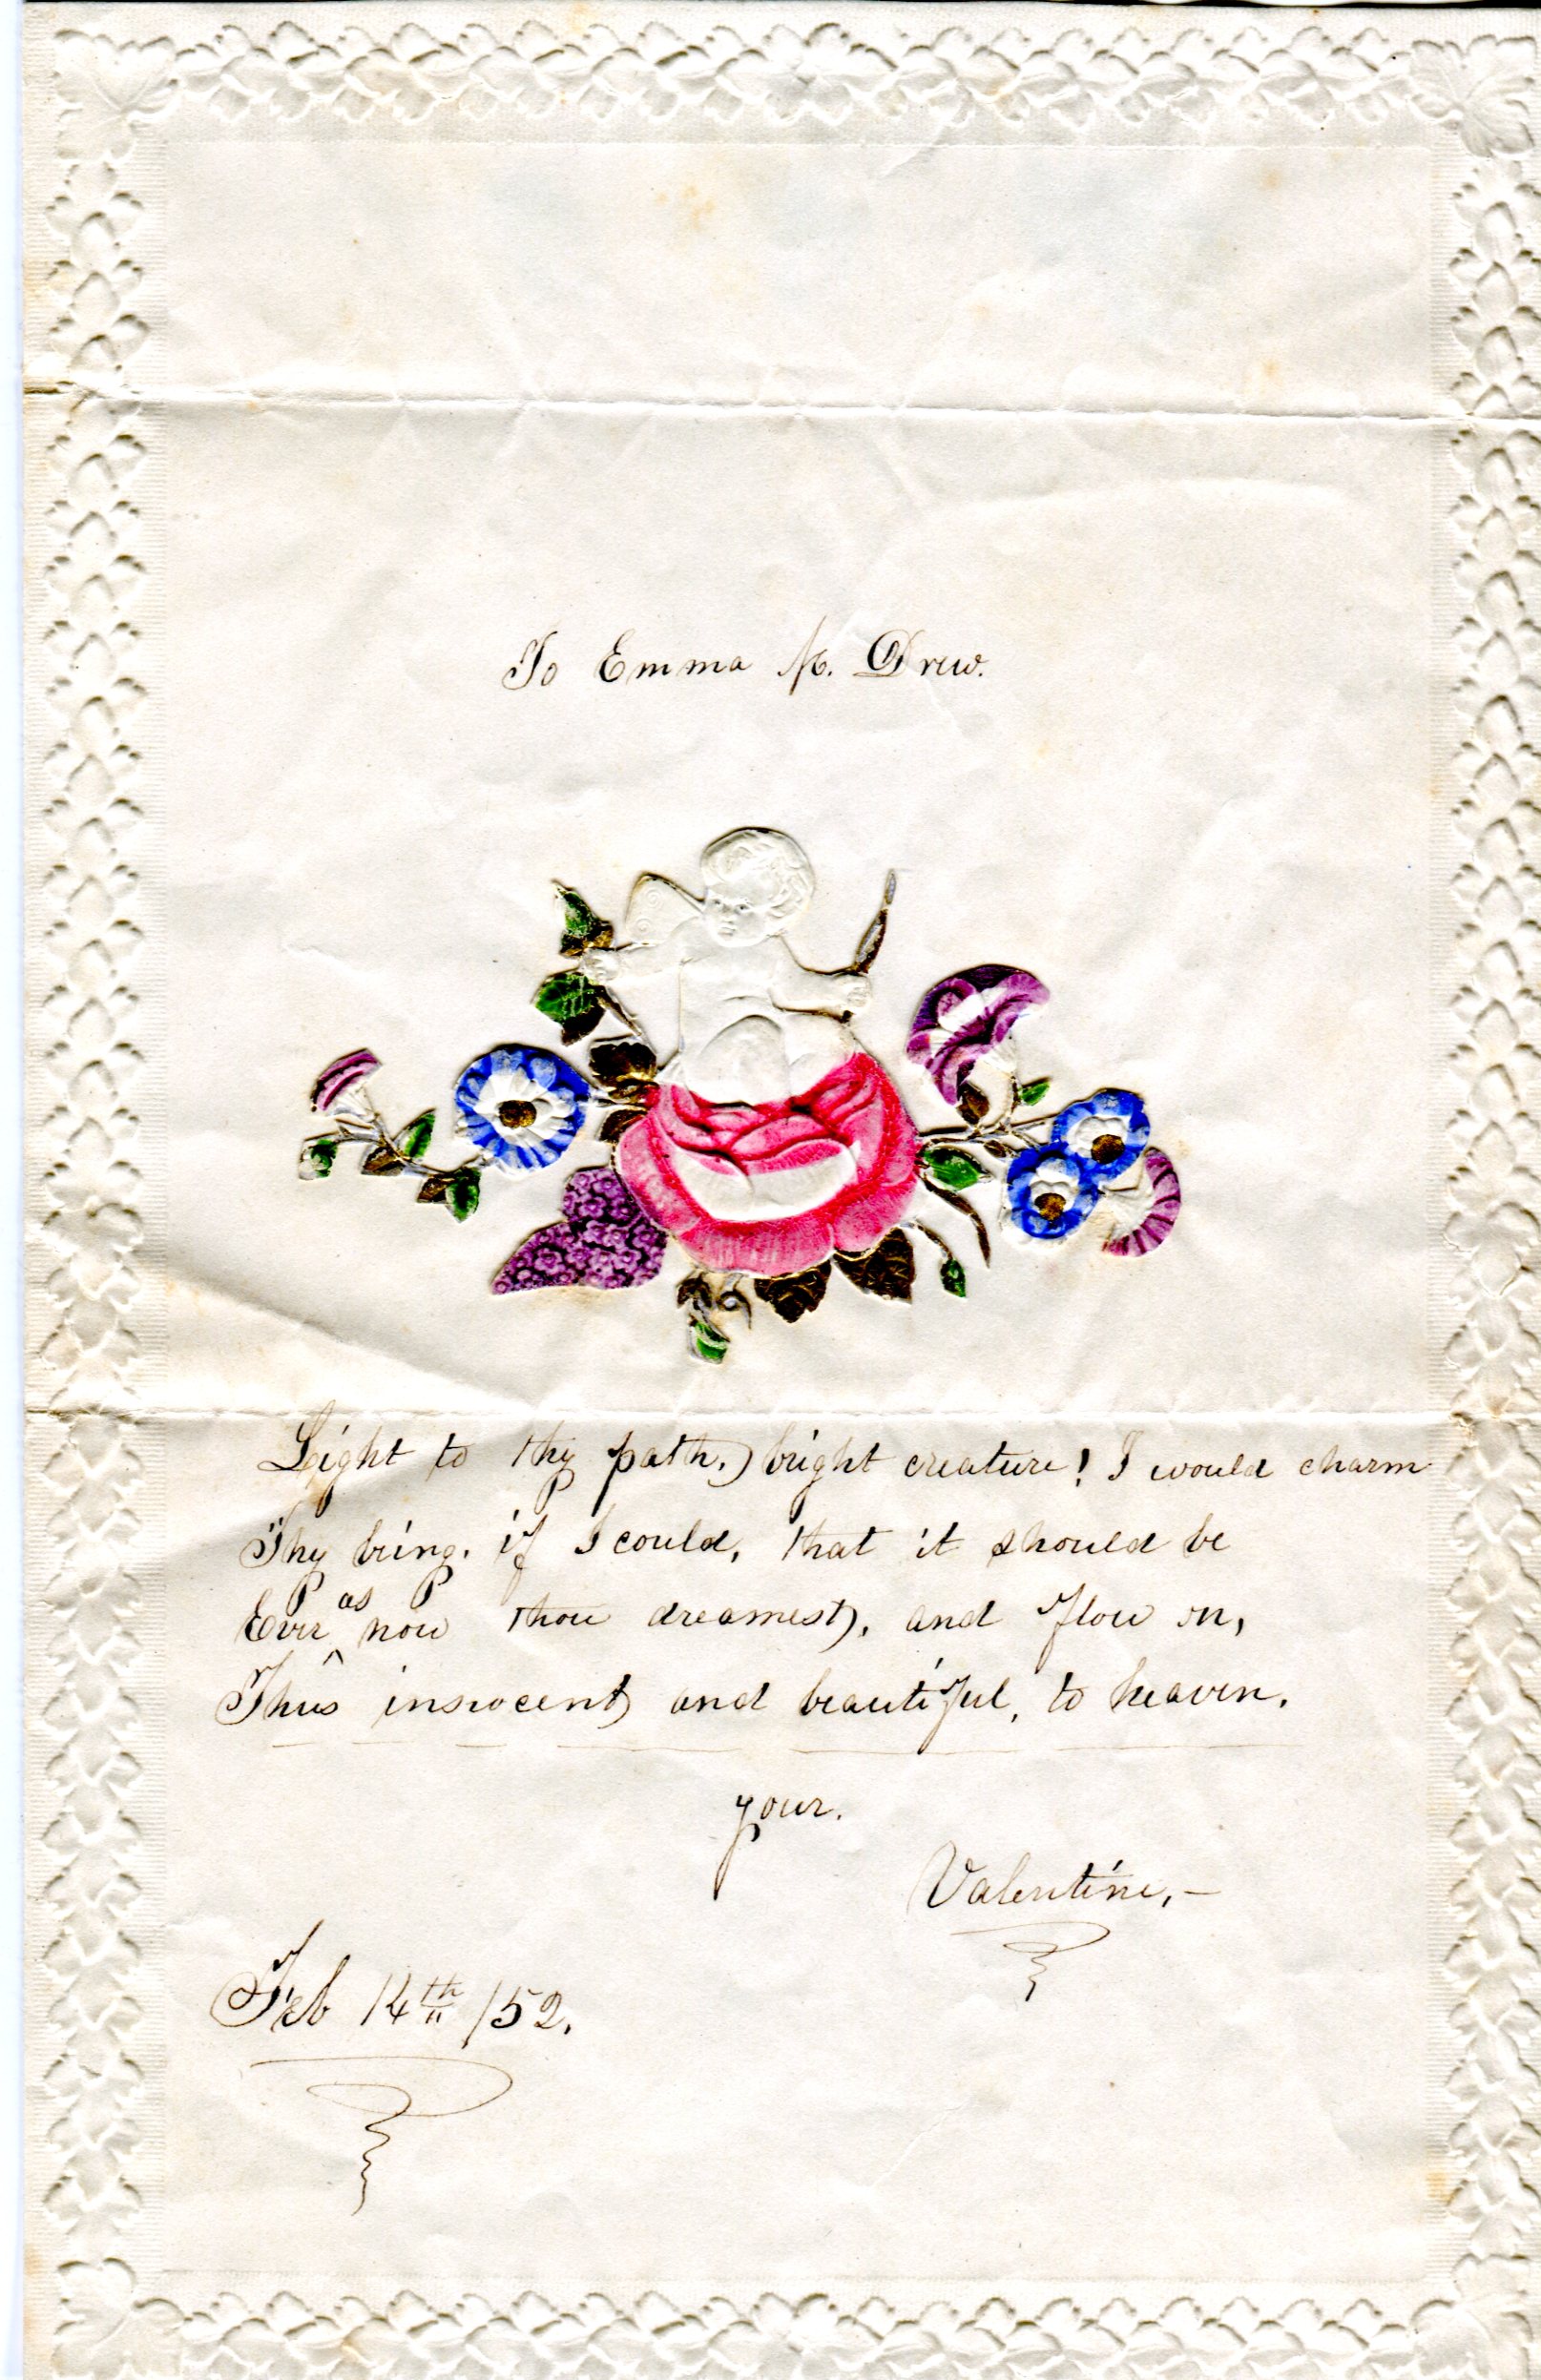 To Emma M. Drew.
Light to thy path, bright creature! I would charm
Thy being, if I could, that it should be
Ever as now thou dreamest, and flow on,
Thus innocent and beautiful, to heaven.
your.
Valentine,—
Feb 14th /52.